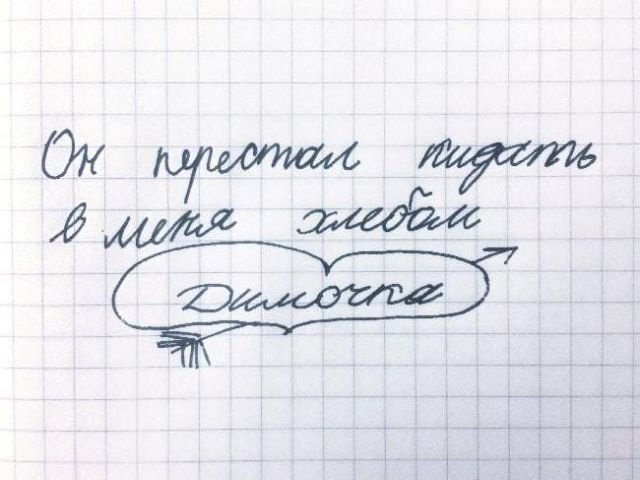 Он перестал кидать
в меня хлебом
Димочка